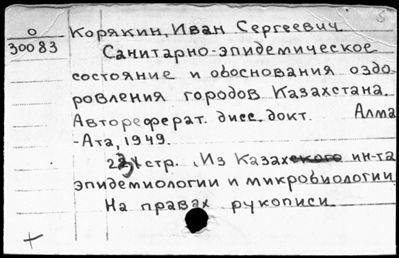 о
30083
Корякин, Иван Сергеевич
Санитарно-эпидемическое
состояние и обоснования оздо-
ровления городов Казахстана.
Автореферат. дисс. докт. Алма
-Ата, 1949.
стр. Из Казах ин-та
эпидемиологии и микробиологии
На правах рукописи